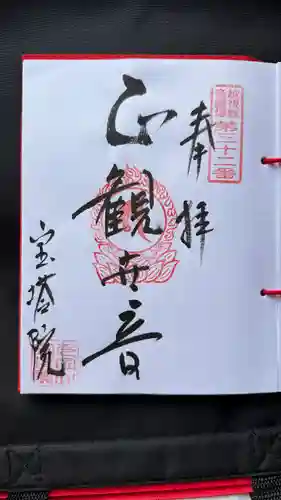 奉拝
正観世音
宝塔院
第三十二番